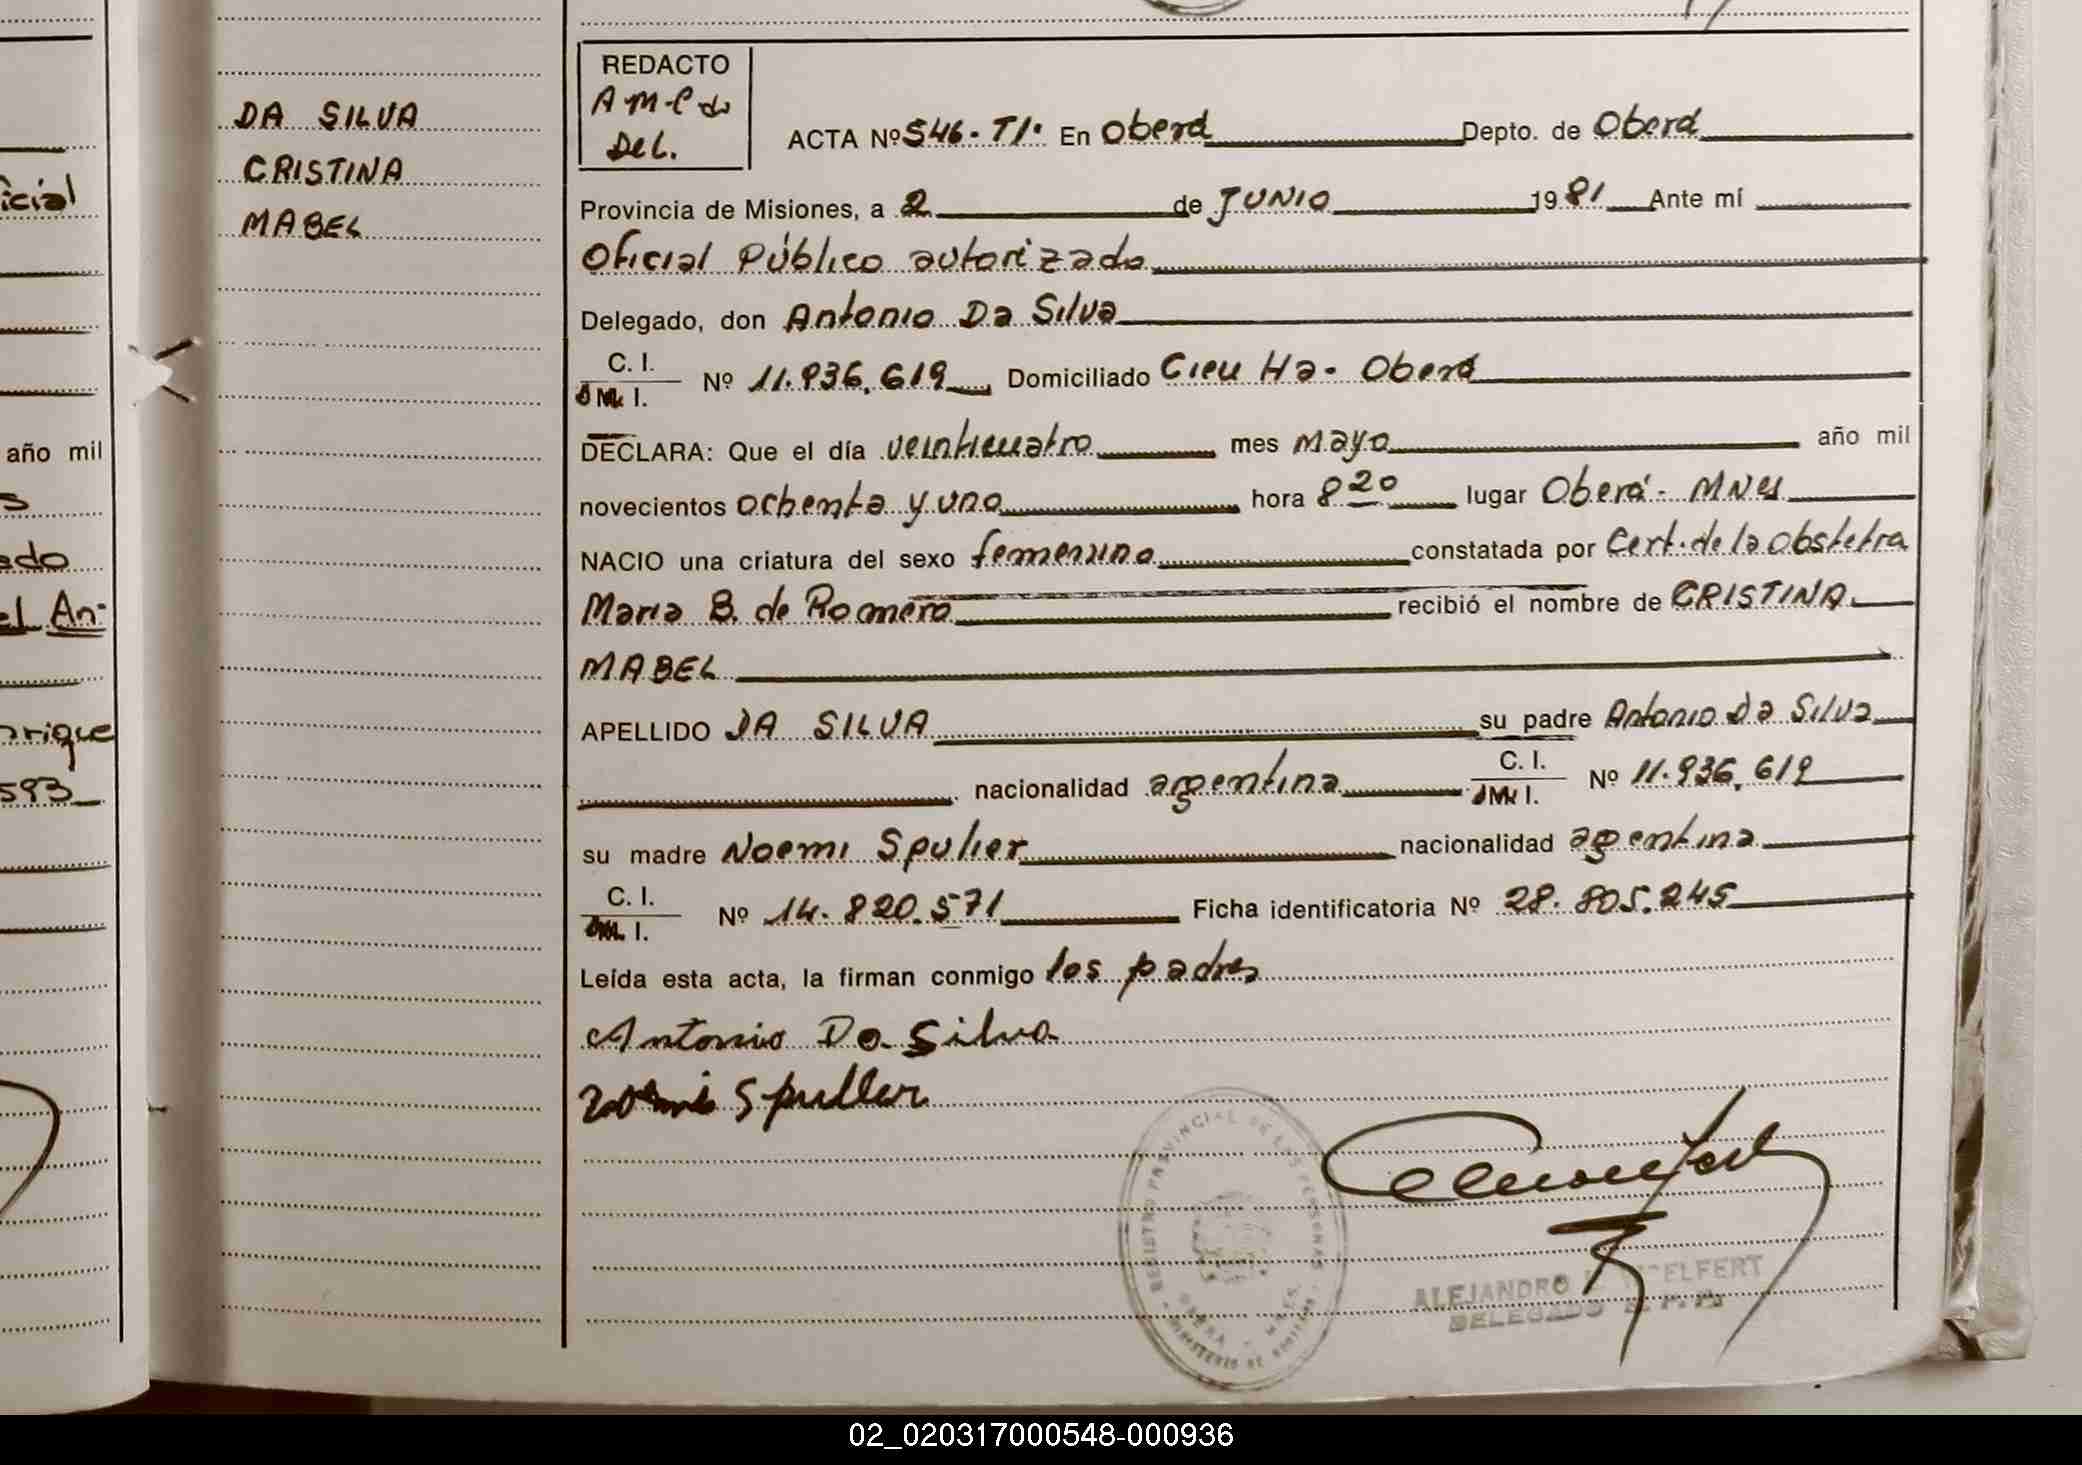 DA SILVA
CRISTINA
MABEL
REDACTO
A M-C de
DEL.
ACTA Nº 546-TI· En Oberá Depto. de Oberá
Provincia de Misiones, a 2 de JUNIO 1981 Ante mí
Oficial Público autorizado
Delegado, don Antonio Da Silva
C. I.
M. I.
Nº 11.936.619 Domiciliado Cieu Ha- Oberá
DECLARA: Que el día veinticuatro mes mayo año mil
novecientos ochenta y uno hora 8 20 lugar Oberá- MNES
NACIO una criatura del sexo femenino constatada por Cert. de la obstetra
Maria B. de Romero recibió el nombre de CRISTINA
MABEL
APELLIDO DA SILVA su padre Antonio Da Silva
nacionalidad argentina C. I. M. I. Nº 11.936.619
su madre Noemi Spulier nacionalidad argentina
C. I.
M. I.
Nº 14.820.571 Ficha identificatoria Nº 28.805.245
Leída esta acta, la firman conmigo los padres
Antonio Da Silva
Noemi Spuller
REGISTRO PROVINCIAL DE LAS PERSONAS
OBERA - MNES.
MINISTERIO DE
ALEJANDRO ELFERT
DELEGADO R. P. P.
icial
año mil
s
ado
el An-
nrique
593
02_020317000548-000936